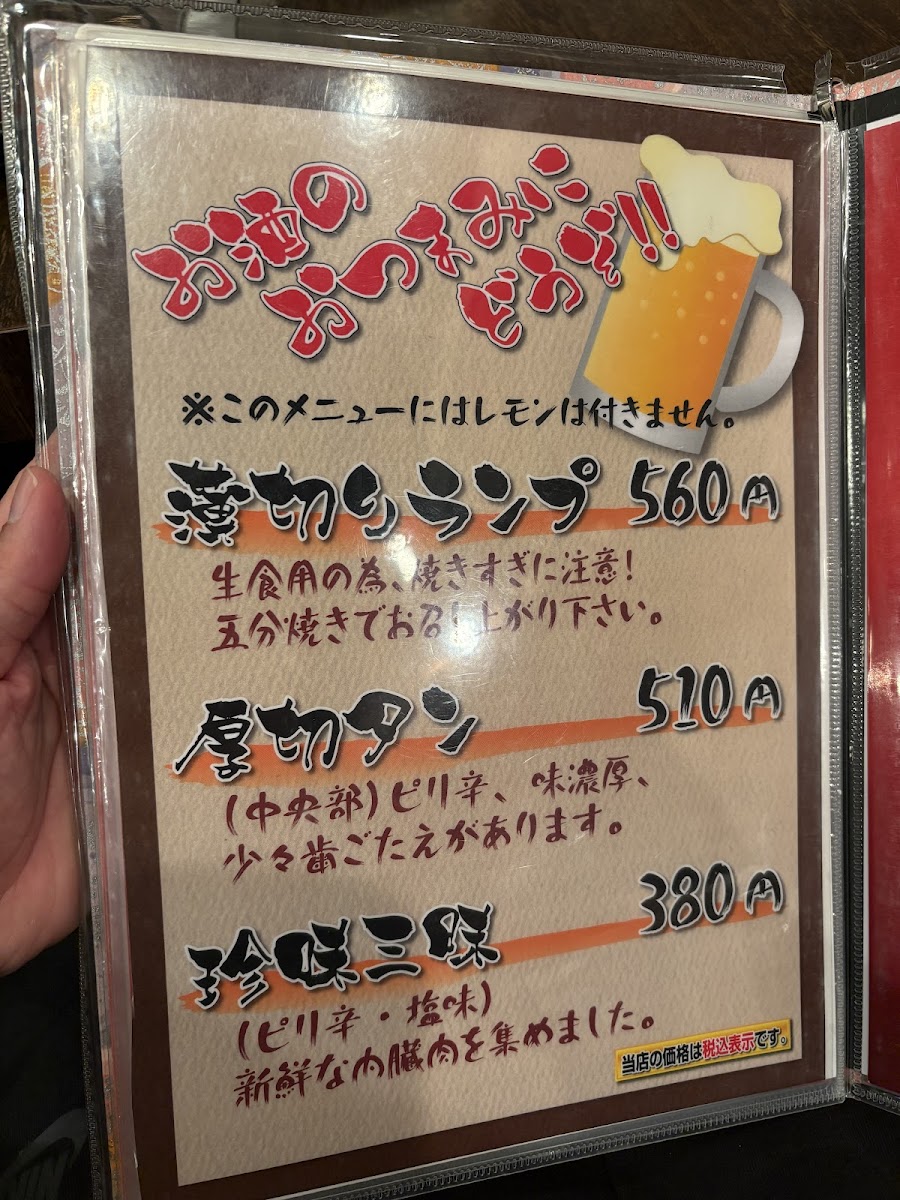 お酒の
おつまみに
どうぞ!!
※このメニューにはレモンは付きません。
薄切りランプ 560円
生食用の為、焼きすぎに注意!
五分焼きでお召し上がり下さい。
厚切タン 510円
(中央部)ピリ辛、味濃厚、
少々歯ごたえがあります。
珍味三昧 380円
(ピリ辛・塩味)
新鮮な内臓肉を集めました。
当店の価格は税込表示です。